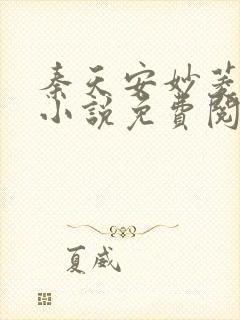 秦天安妙菱
小說免費閱
夏威